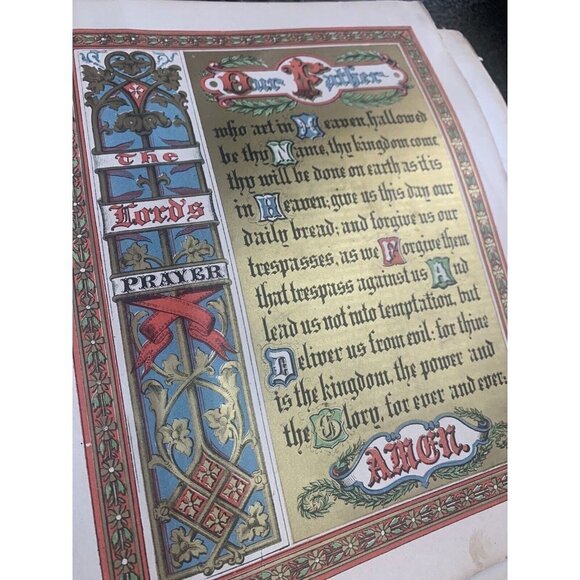 The
Lord's
PRAYER
Our Father
who art in Heaven, hallowed
be thy Name, thy kingdom come
thy will be done on earth as it is
in Heaven: give us this day our
daily bread; and forgive us our
trespasses, as we Forgive them
that trespass against us And
lead us not into temptation, but
Deliver us from evil: for thine
is the kingdom, the power and
the Glory, for ever and ever:
AMEN.